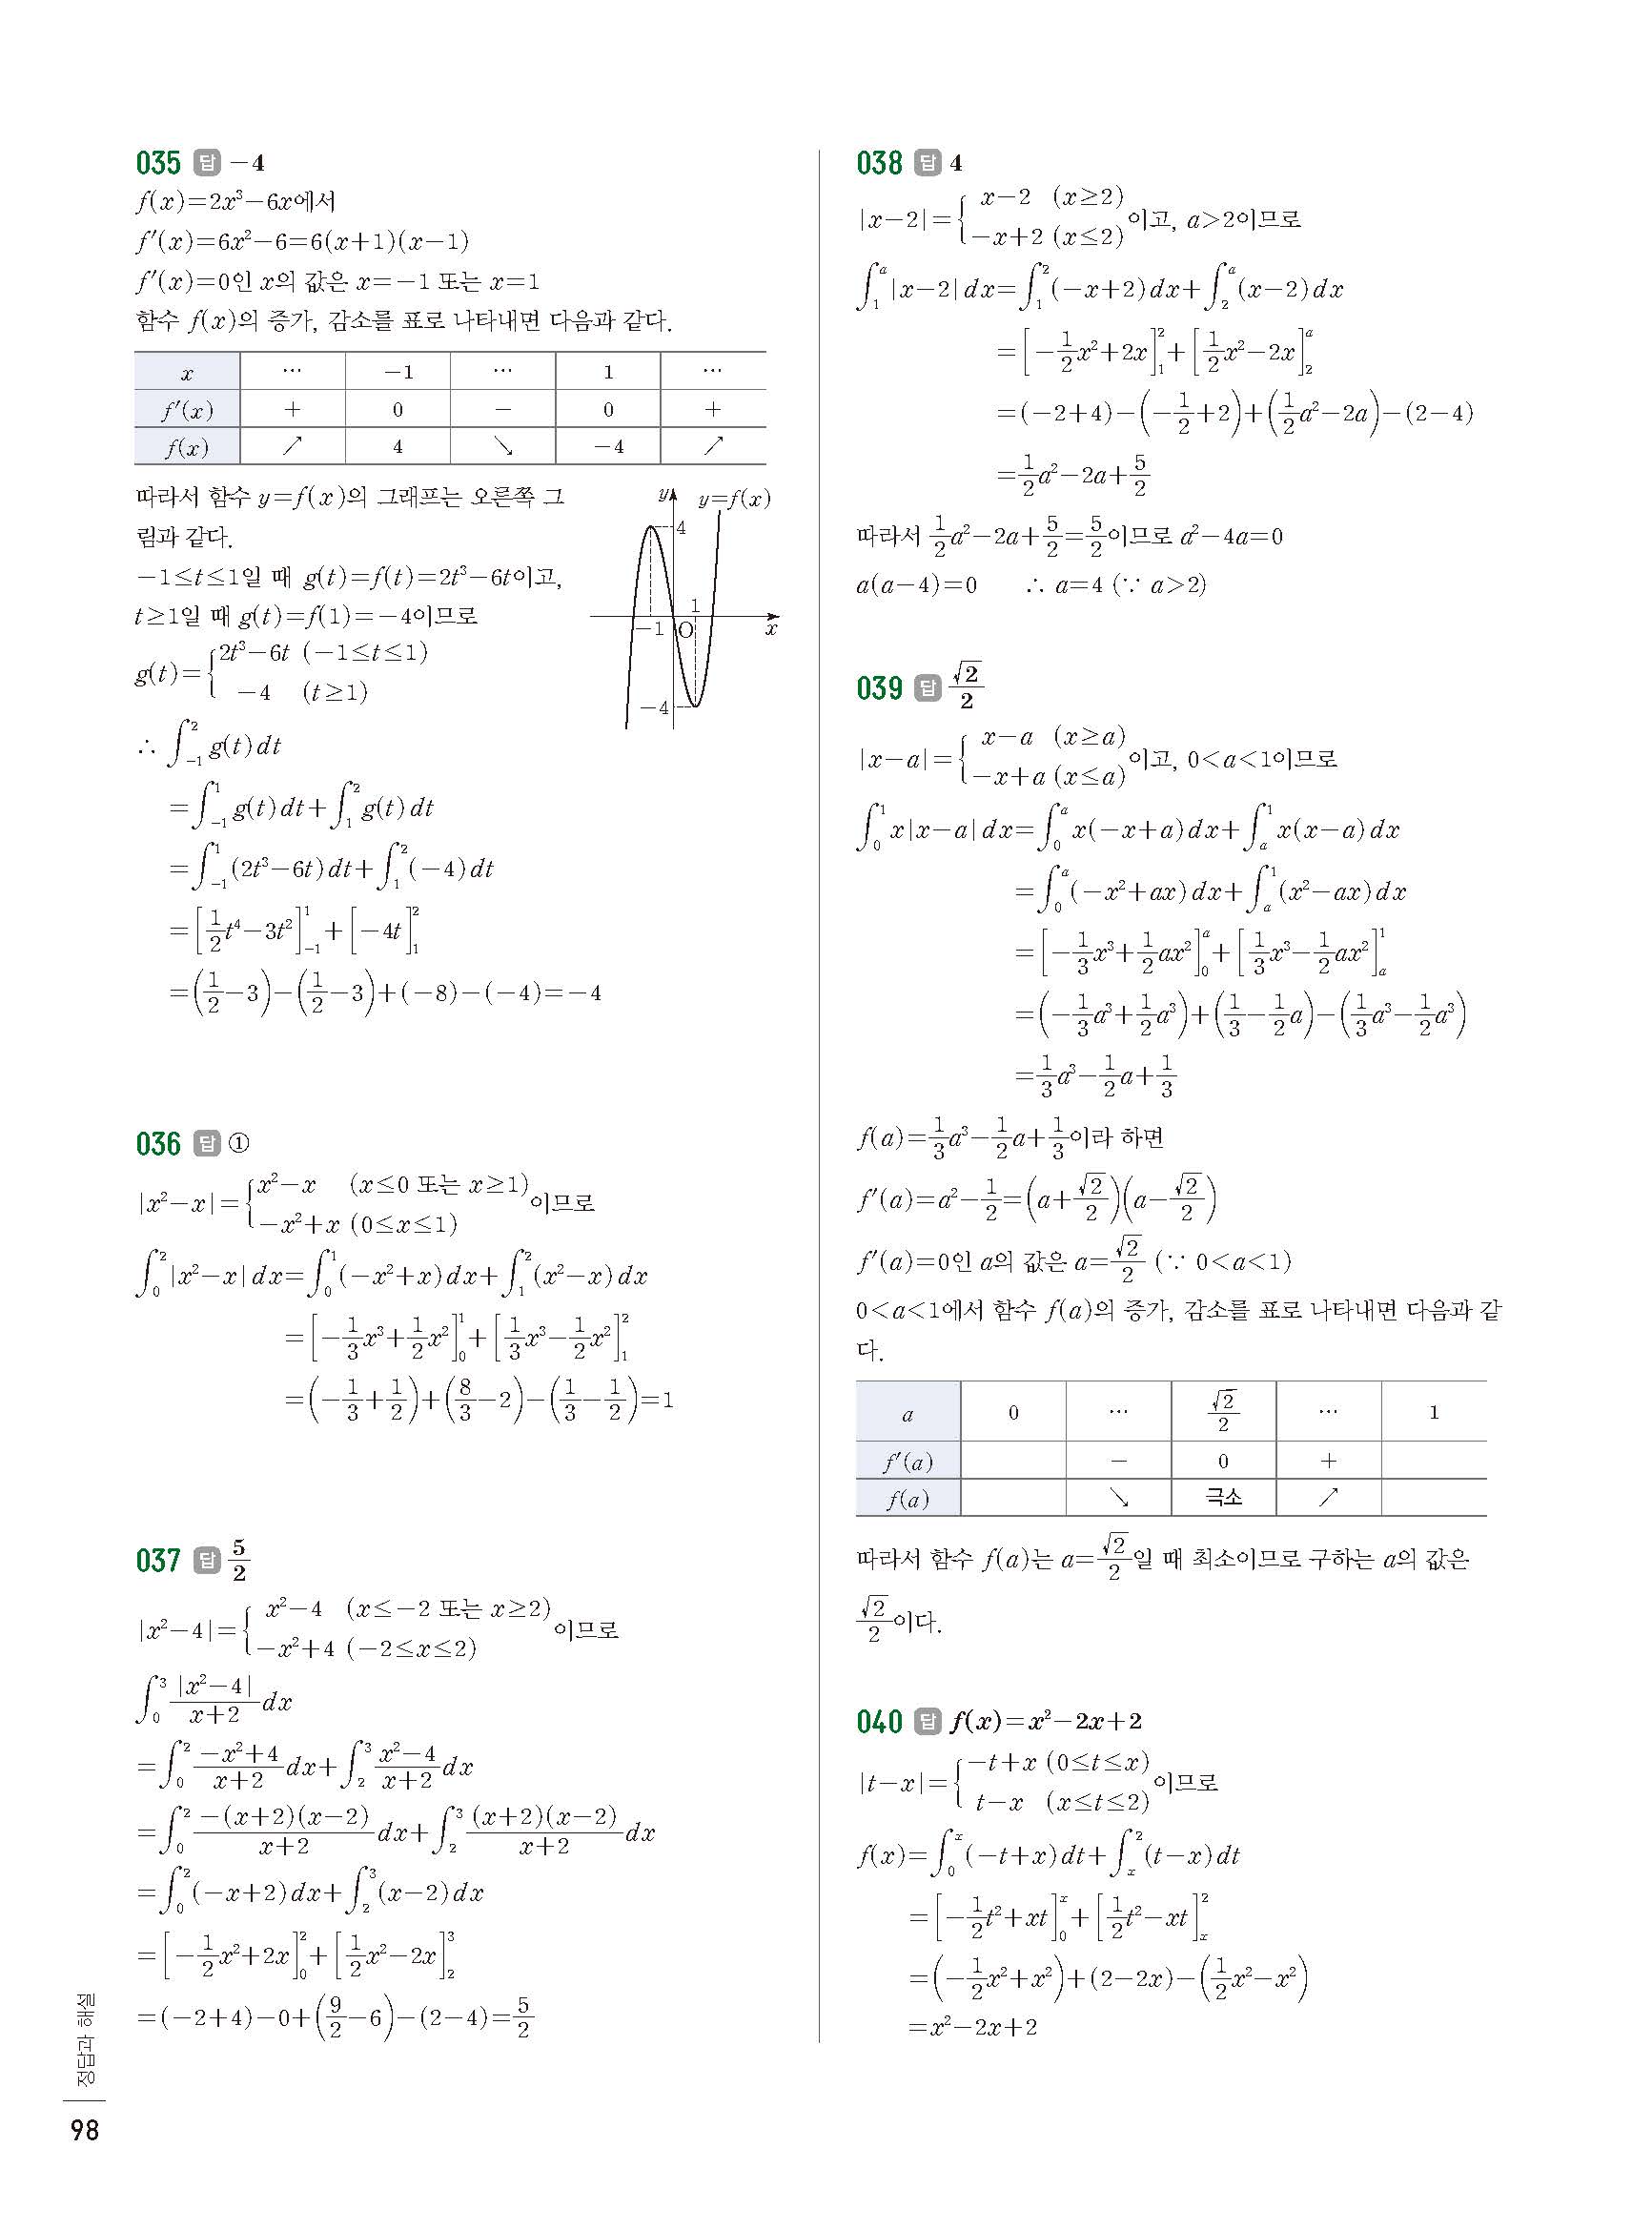 035 답 −4
f(x)=2x³−6x에서
f′(x)=6x²−6=6(x+1)(x−1)
f′(x)=0인 x의 값은 x=−1 또는 x=1
함수 f(x)의 증가, 감소를 표로 나타내면 다음과 같다.
x … −1 … 1 …
f′(x) + 0 − 0 +
f(x) ↗ 4 ↘ −4 ↗
따라서 함수 y=f(x)의 그래프는 오른쪽 그
림과 같다.
−1≤t≤1일 때 g(t)=f(t)=2t³−6t이고,
t≥1일 때 g(t)=f(1)=−4이므로
g(t)={2t³−6t (−1≤t≤1)
−4 (t≥1)
y y=f(x)
4
1
−1 O x
−4
∴ ∫₋₁² g(t)dt
=∫₋₁¹ g(t)dt+∫₁² g(t)dt
=∫₋₁¹ (2t³−6t)dt+∫₁² (−4)dt
=[1/2 t⁴−3t²]₋₁¹+[−4t]₁²
=(1/2−3)−(1/2−3)+(−8)−(−4)=−4
036 답 ①
|x²−x|={x²−x (x≤0 또는 x≥1)
−x²+x (0≤x≤1) 이므로
∫₀² |x²−x|dx=∫₀¹ (−x²+x)dx+∫₁² (x²−x)dx
=[−1/3 x³+1/2 x²]₀¹+[1/3 x³−1/2 x²]₁²
=(−1/3+1/2)+(8/3−2)−(1/3−1/2)=1
037 답 5/2
|x²−4|={x²−4 (x≤−2 또는 x≥2)
−x²+4 (−2≤x≤2) 이므로
∫₀³ |x²−4|/(x+2) dx
=∫₀² (−x²+4)/(x+2) dx+∫₂³ (x²−4)/(x+2) dx
=∫₀² −(x+2)(x−2)/(x+2) dx+∫₂³ (x+2)(x−2)/(x+2) dx
=∫₀² (−x+2)dx+∫₂³ (x−2)dx
=[−1/2 x²+2x]₀²+[1/2 x²−2x]₂³
=(−2+4)−0+(9/2−6)−(2−4)=5/2
038 답 4
|x−2|={x−2 (x≥2)
−x+2 (x≤2) 이고, a>2이므로
∫₁ᵃ |x−2|dx=∫₁² (−x+2)dx+∫₂ᵃ (x−2)dx
=[−1/2 x²+2x]₁²+[1/2 x²−2x]₂ᵃ
=(−2+4)−(−1/2+2)+(1/2 a²−2a)−(2−4)
=1/2 a²−2a+5/2
따라서 1/2 a²−2a+5/2=5/2이므로 a²−4a=0
a(a−4)=0 ∴ a=4 (∵ a>2)
039 답 √2/2
|x−a|={x−a (x≥a)
−x+a (x≤a) 이고, 0<a<1이므로
∫₀¹ x|x−a|dx=∫₀ᵃ x(−x+a)dx+∫ₐ¹ x(x−a)dx
=∫₀ᵃ (−x²+ax)dx+∫ₐ¹ (x²−ax)dx
=[−1/3 x³+1/2 ax²]₀ᵃ+[1/3 x³−1/2 ax²]ₐ¹
=(−1/3 a³+1/2 a³)+(1/3−1/2 a)−(1/3 a³−1/2 a³)
=1/3 a³−1/2 a+1/3
f(a)=1/3 a³−1/2 a+1/3이라 하면
f′(a)=a²−1/2=(a+√2/2)(a−√2/2)
f′(a)=0인 a의 값은 a=√2/2 (∵ 0<a<1)
0<a<1에서 함수 f(a)의 증가, 감소를 표로 나타내면 다음과 같
다.
a 0 … √2/2 … 1
f′(a) − 0 +
f(a) ↘ 극소 ↗
따라서 함수 f(a)는 a=√2/2일 때 최소이므로 구하는 a의 값은
√2/2이다.
040 답 f(x)=x²−2x+2
|t−x|={−t+x (0≤t≤x)
t−x (x≤t≤2) 이므로
f(x)=∫₀ˣ (−t+x)dt+∫ₓ² (t−x)dt
=[−1/2 t²+xt]₀ˣ+[1/2 t²−xt]ₓ²
=(−1/2 x²+x²)+(2−2x)−(1/2 x²−x²)
=x²−2x+2
정답과 해설
98